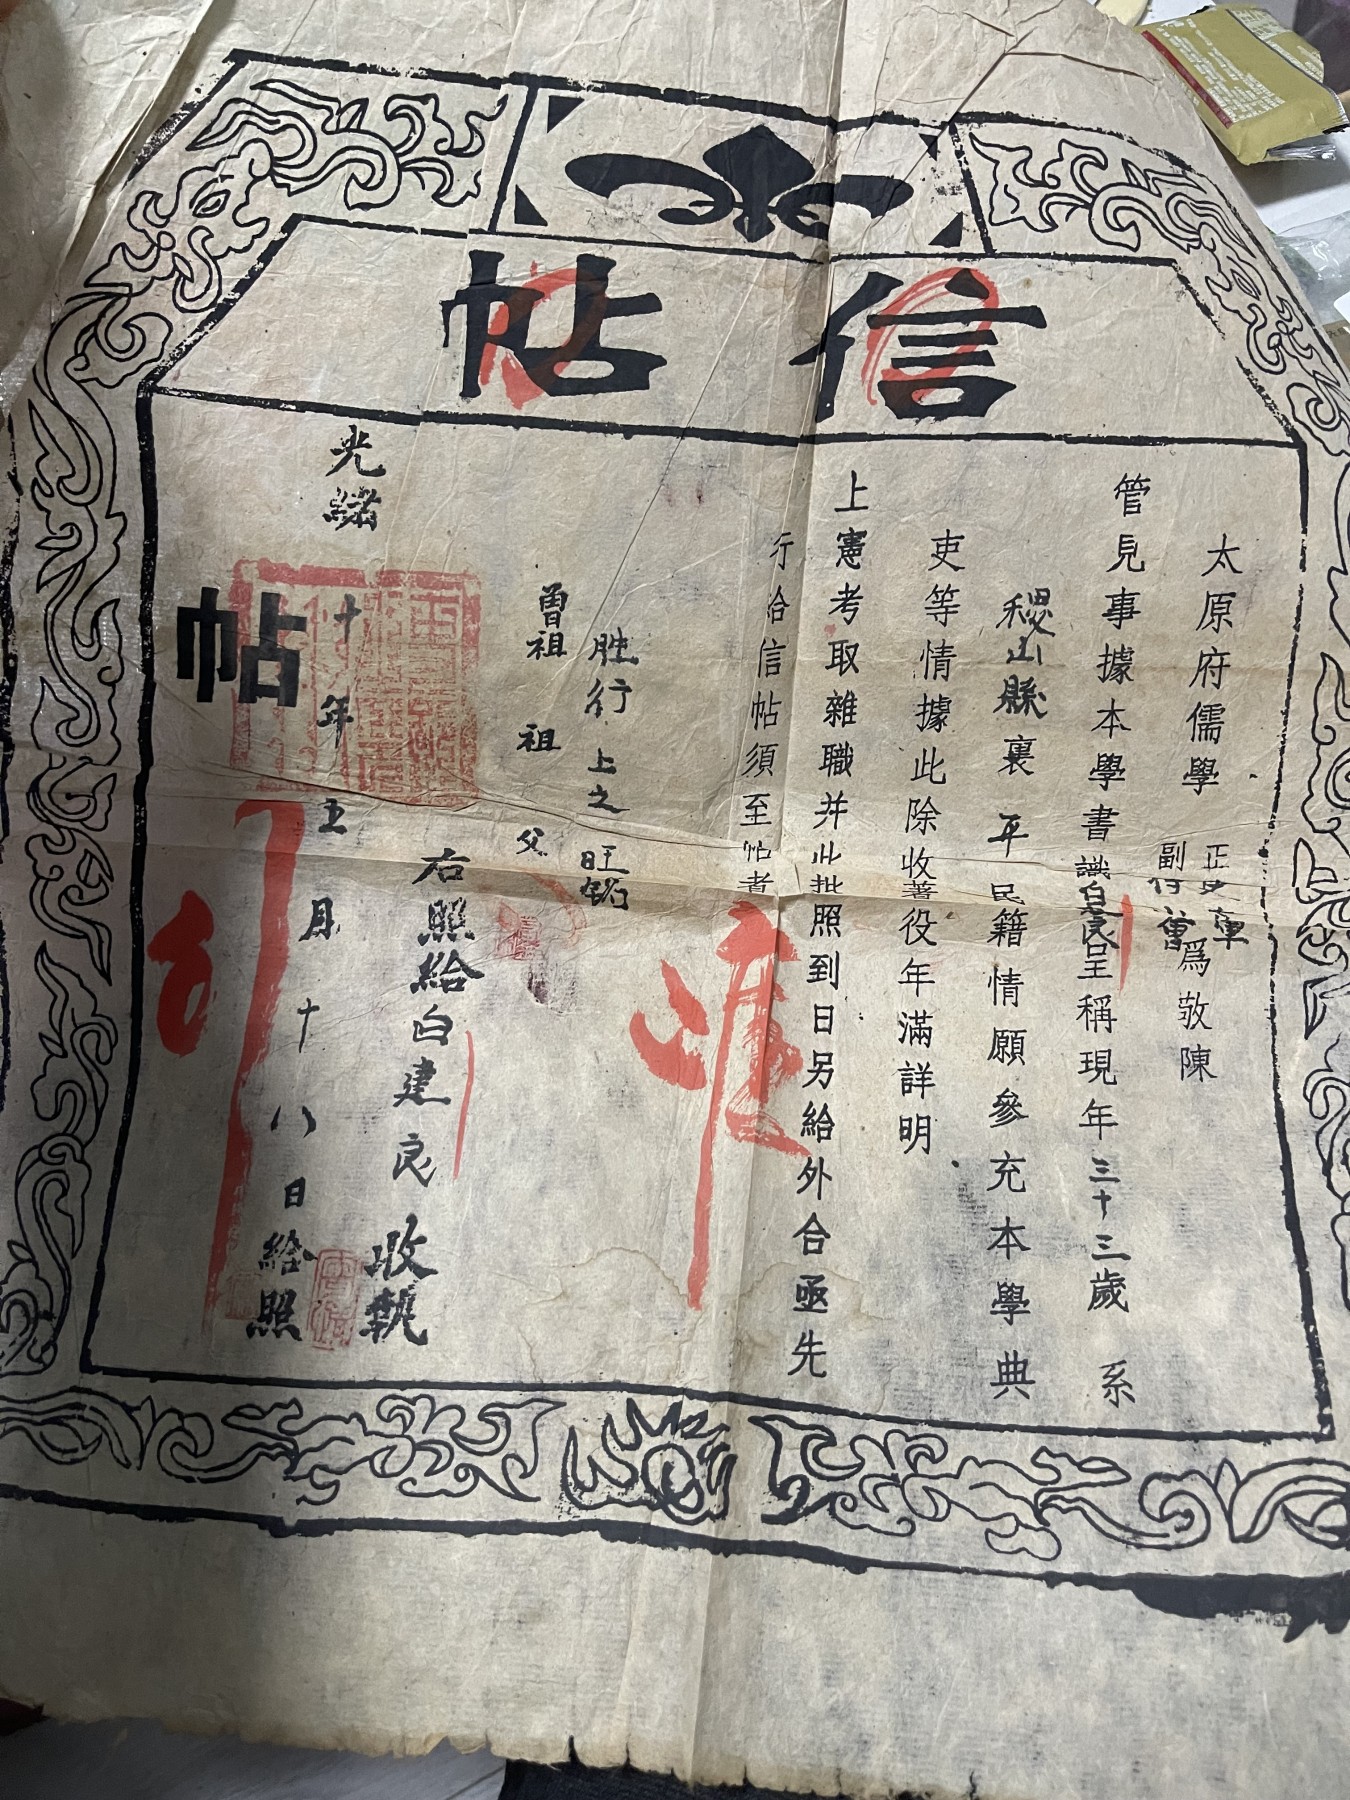 信帖
太原府儒學
正
副
爲敬陳
管見事據本學書識白建良呈稱現年三十三歲 系
稷山縣裏 平民籍情願參充本學典
吏等情據此除收著役年滿詳明
上憲考取雜職并此批照到日另給外合亟先
行給信帖須至帖者
胜行 上之 旺
曽祖 祖 父
右照給白建良 收執
光緒十年五月十八日給照
帖